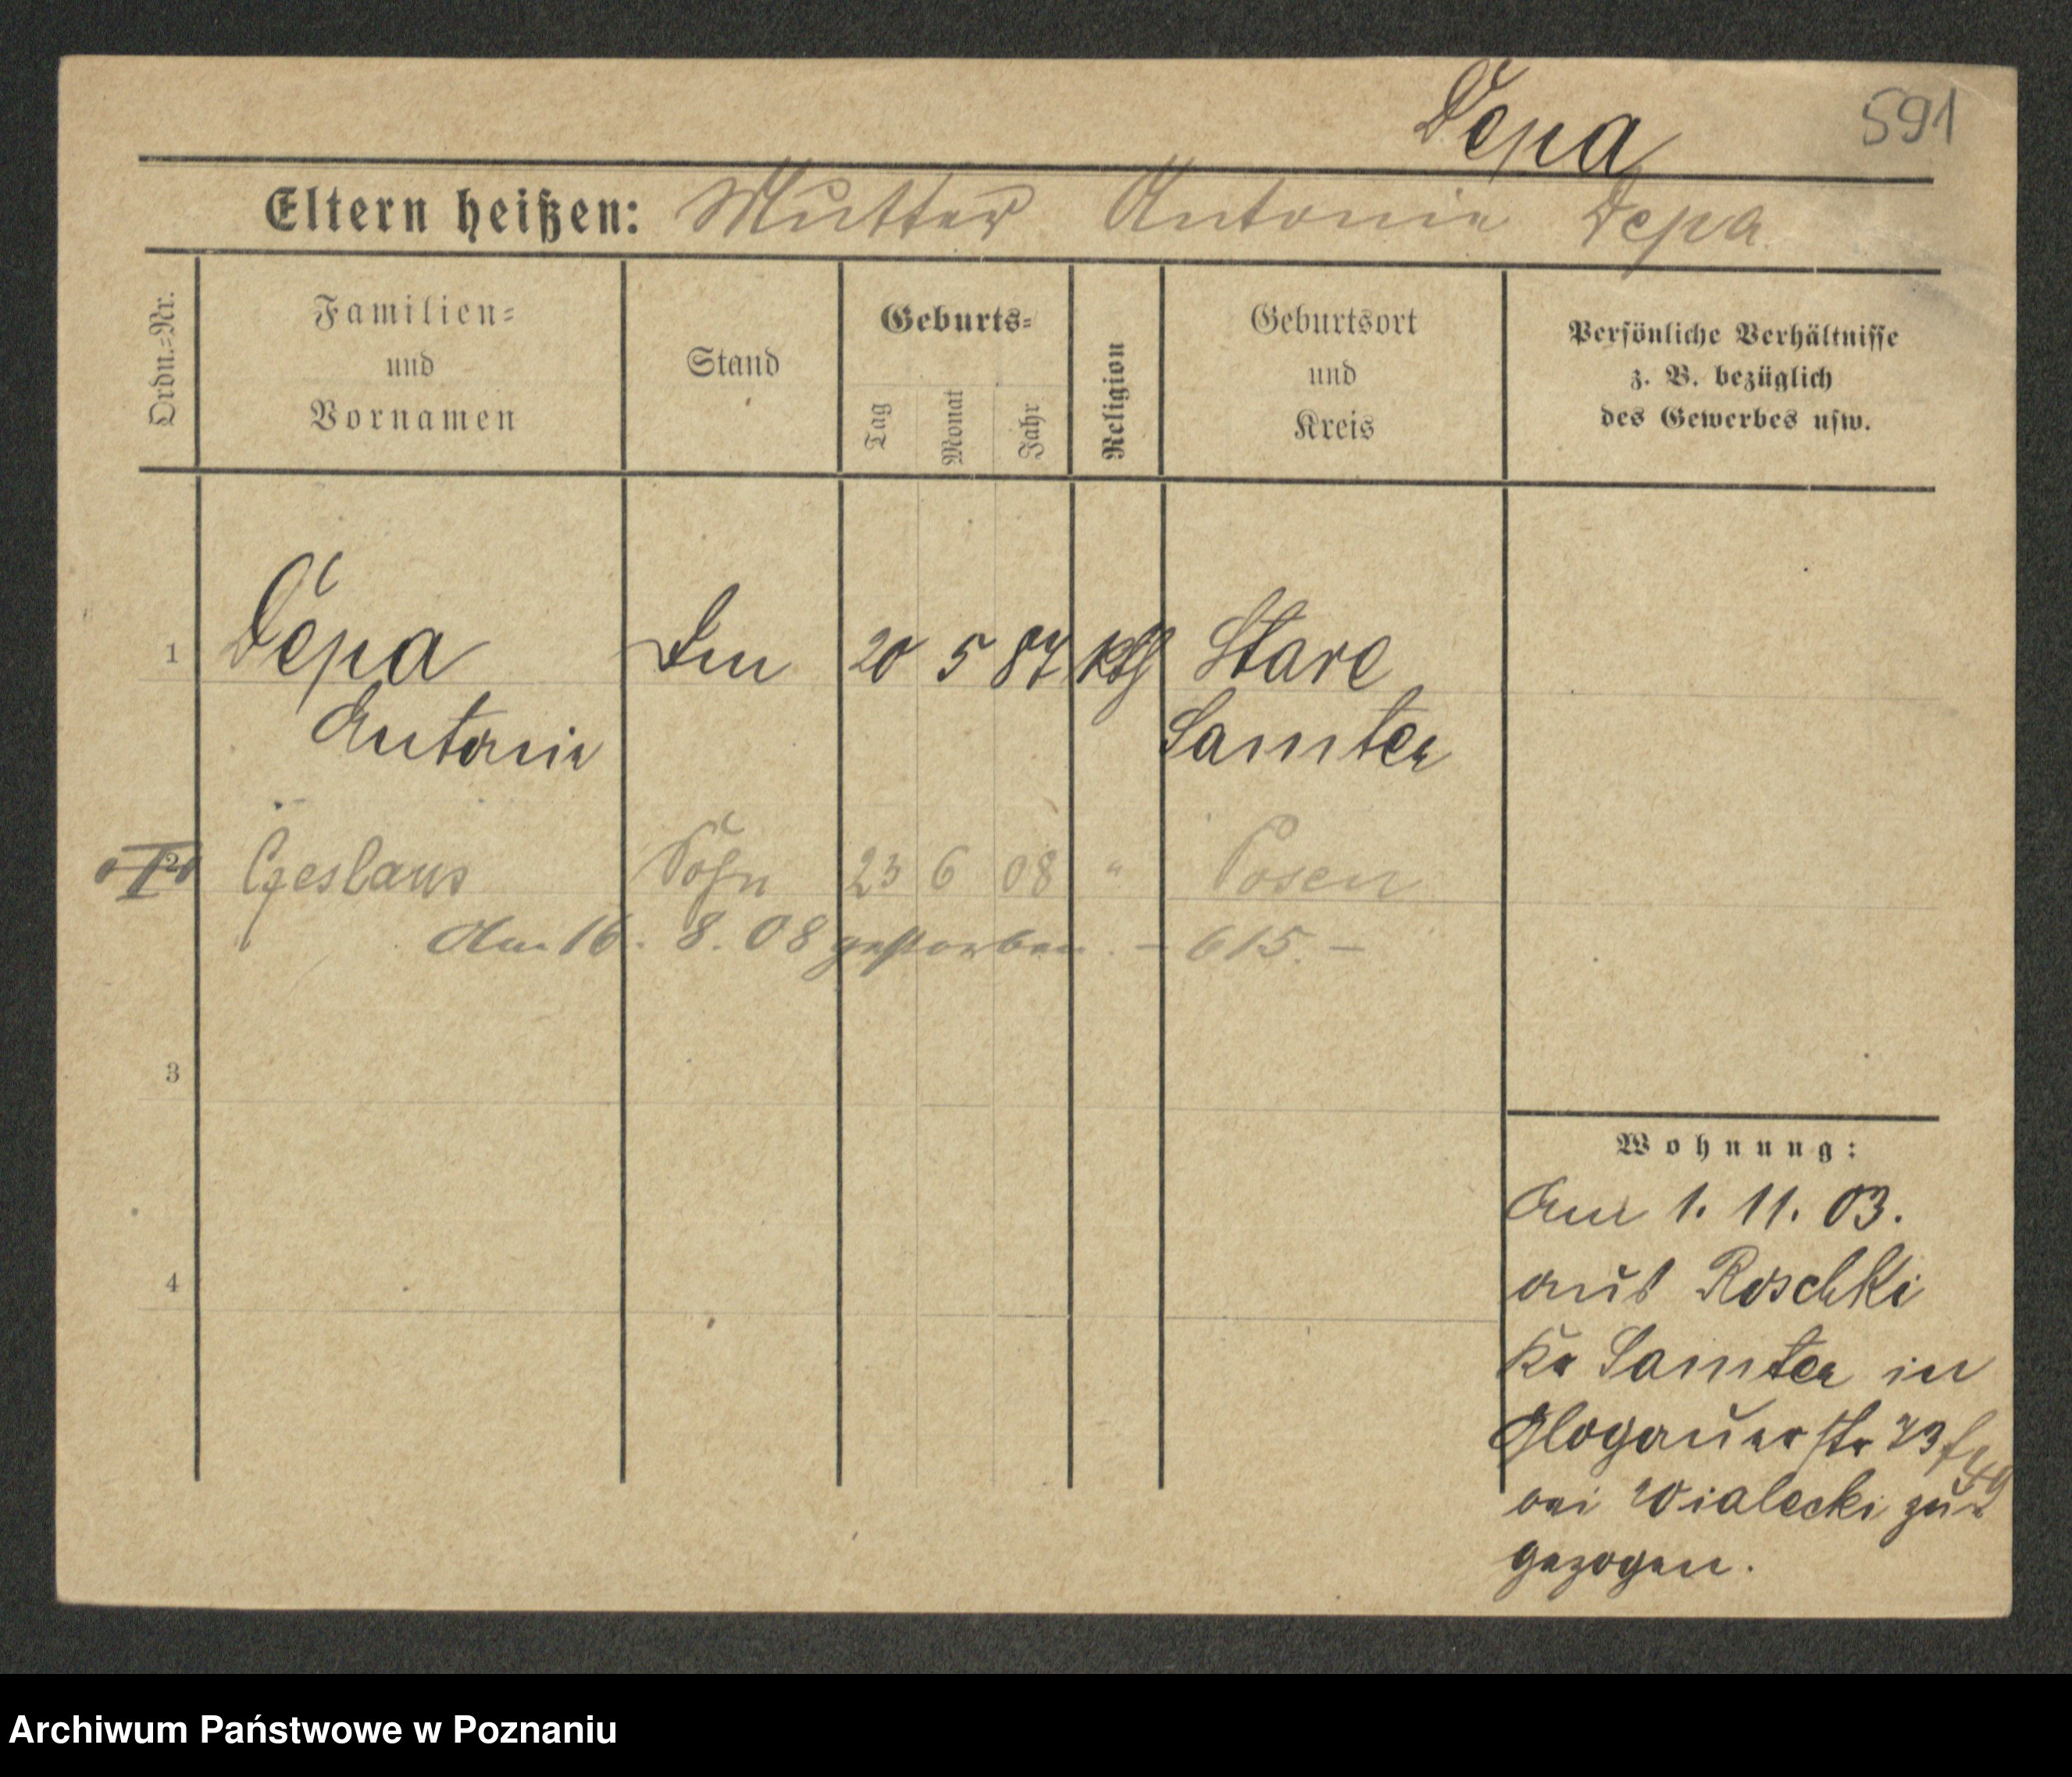 Depa
591
Eltern heißen: Mutter Antonie Depa
Ordn.-Nr.
Familien-
und
Vornamen
Stand
Geburts-
Tag
Monat
Jahr
Religion
Geburtsort
und
Kreis
Persönliche Verhältnisse
z. B. bezüglich
des Gewerbes usw.
1 Depa 20 5 87 kth Stare
Antonie Samter
2 Czeslaus Sohn 23 6 08 " Posen
Am 16. 8. 08 gestorben. – 615. –
3
4
Wohnung:
Am 1. 11. 03.
aus Roschki
Kr Samter in
Glogauerstr 73
bei Wialecki zu
gezogen.
Archiwum Państwowe w Poznaniu